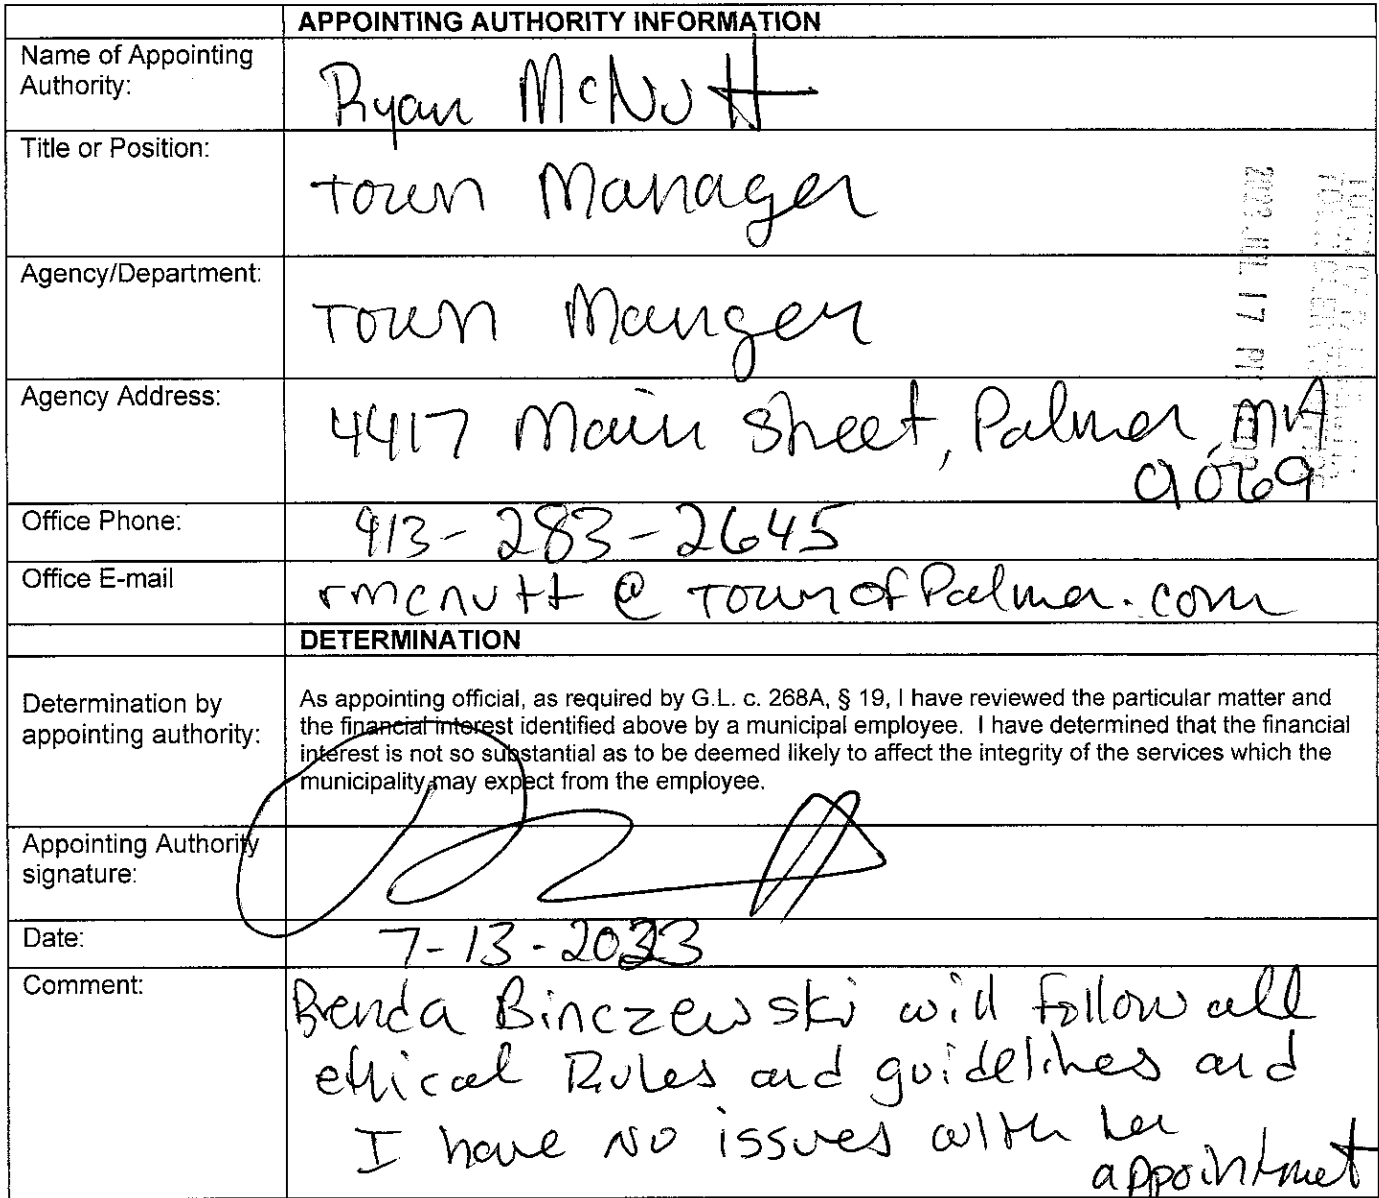 APPOINTING AUTHORITY INFORMATION
Name of Appointing
Authority:
Ryan McNutt
Title or Position:
Town Manager
Agency/Department:
Town Manger
Agency Address:
4417 Main Street, Palmer, MA
01069
Office Phone:
413-283-2645
Office E-mail
rmcnutt @ TownofPalmer.com
DETERMINATION
Determination by
appointing authority:
As appointing official, as required by G.L. c. 268A, § 19, I have reviewed the particular matter and
the financial interest identified above by a municipal employee. I have determined that the financial
interest is not so substantial as to be deemed likely to affect the integrity of the services which the
municipality may expect from the employee.
Appointing Authority
signature:
Date:
7-13-2023
Comment:
Brenda Binczewski will follow all
ethical Rules and guidelines and
I have no issues with her
appointment
JUL 17